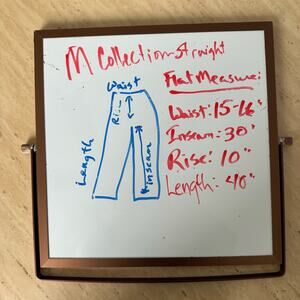 M Collection-Straight
Flat Measure:
Waist
Waist: 15-16"
Ri...
Inseam: 30"
Rise: 10"
Length
inseam
Length: 40"